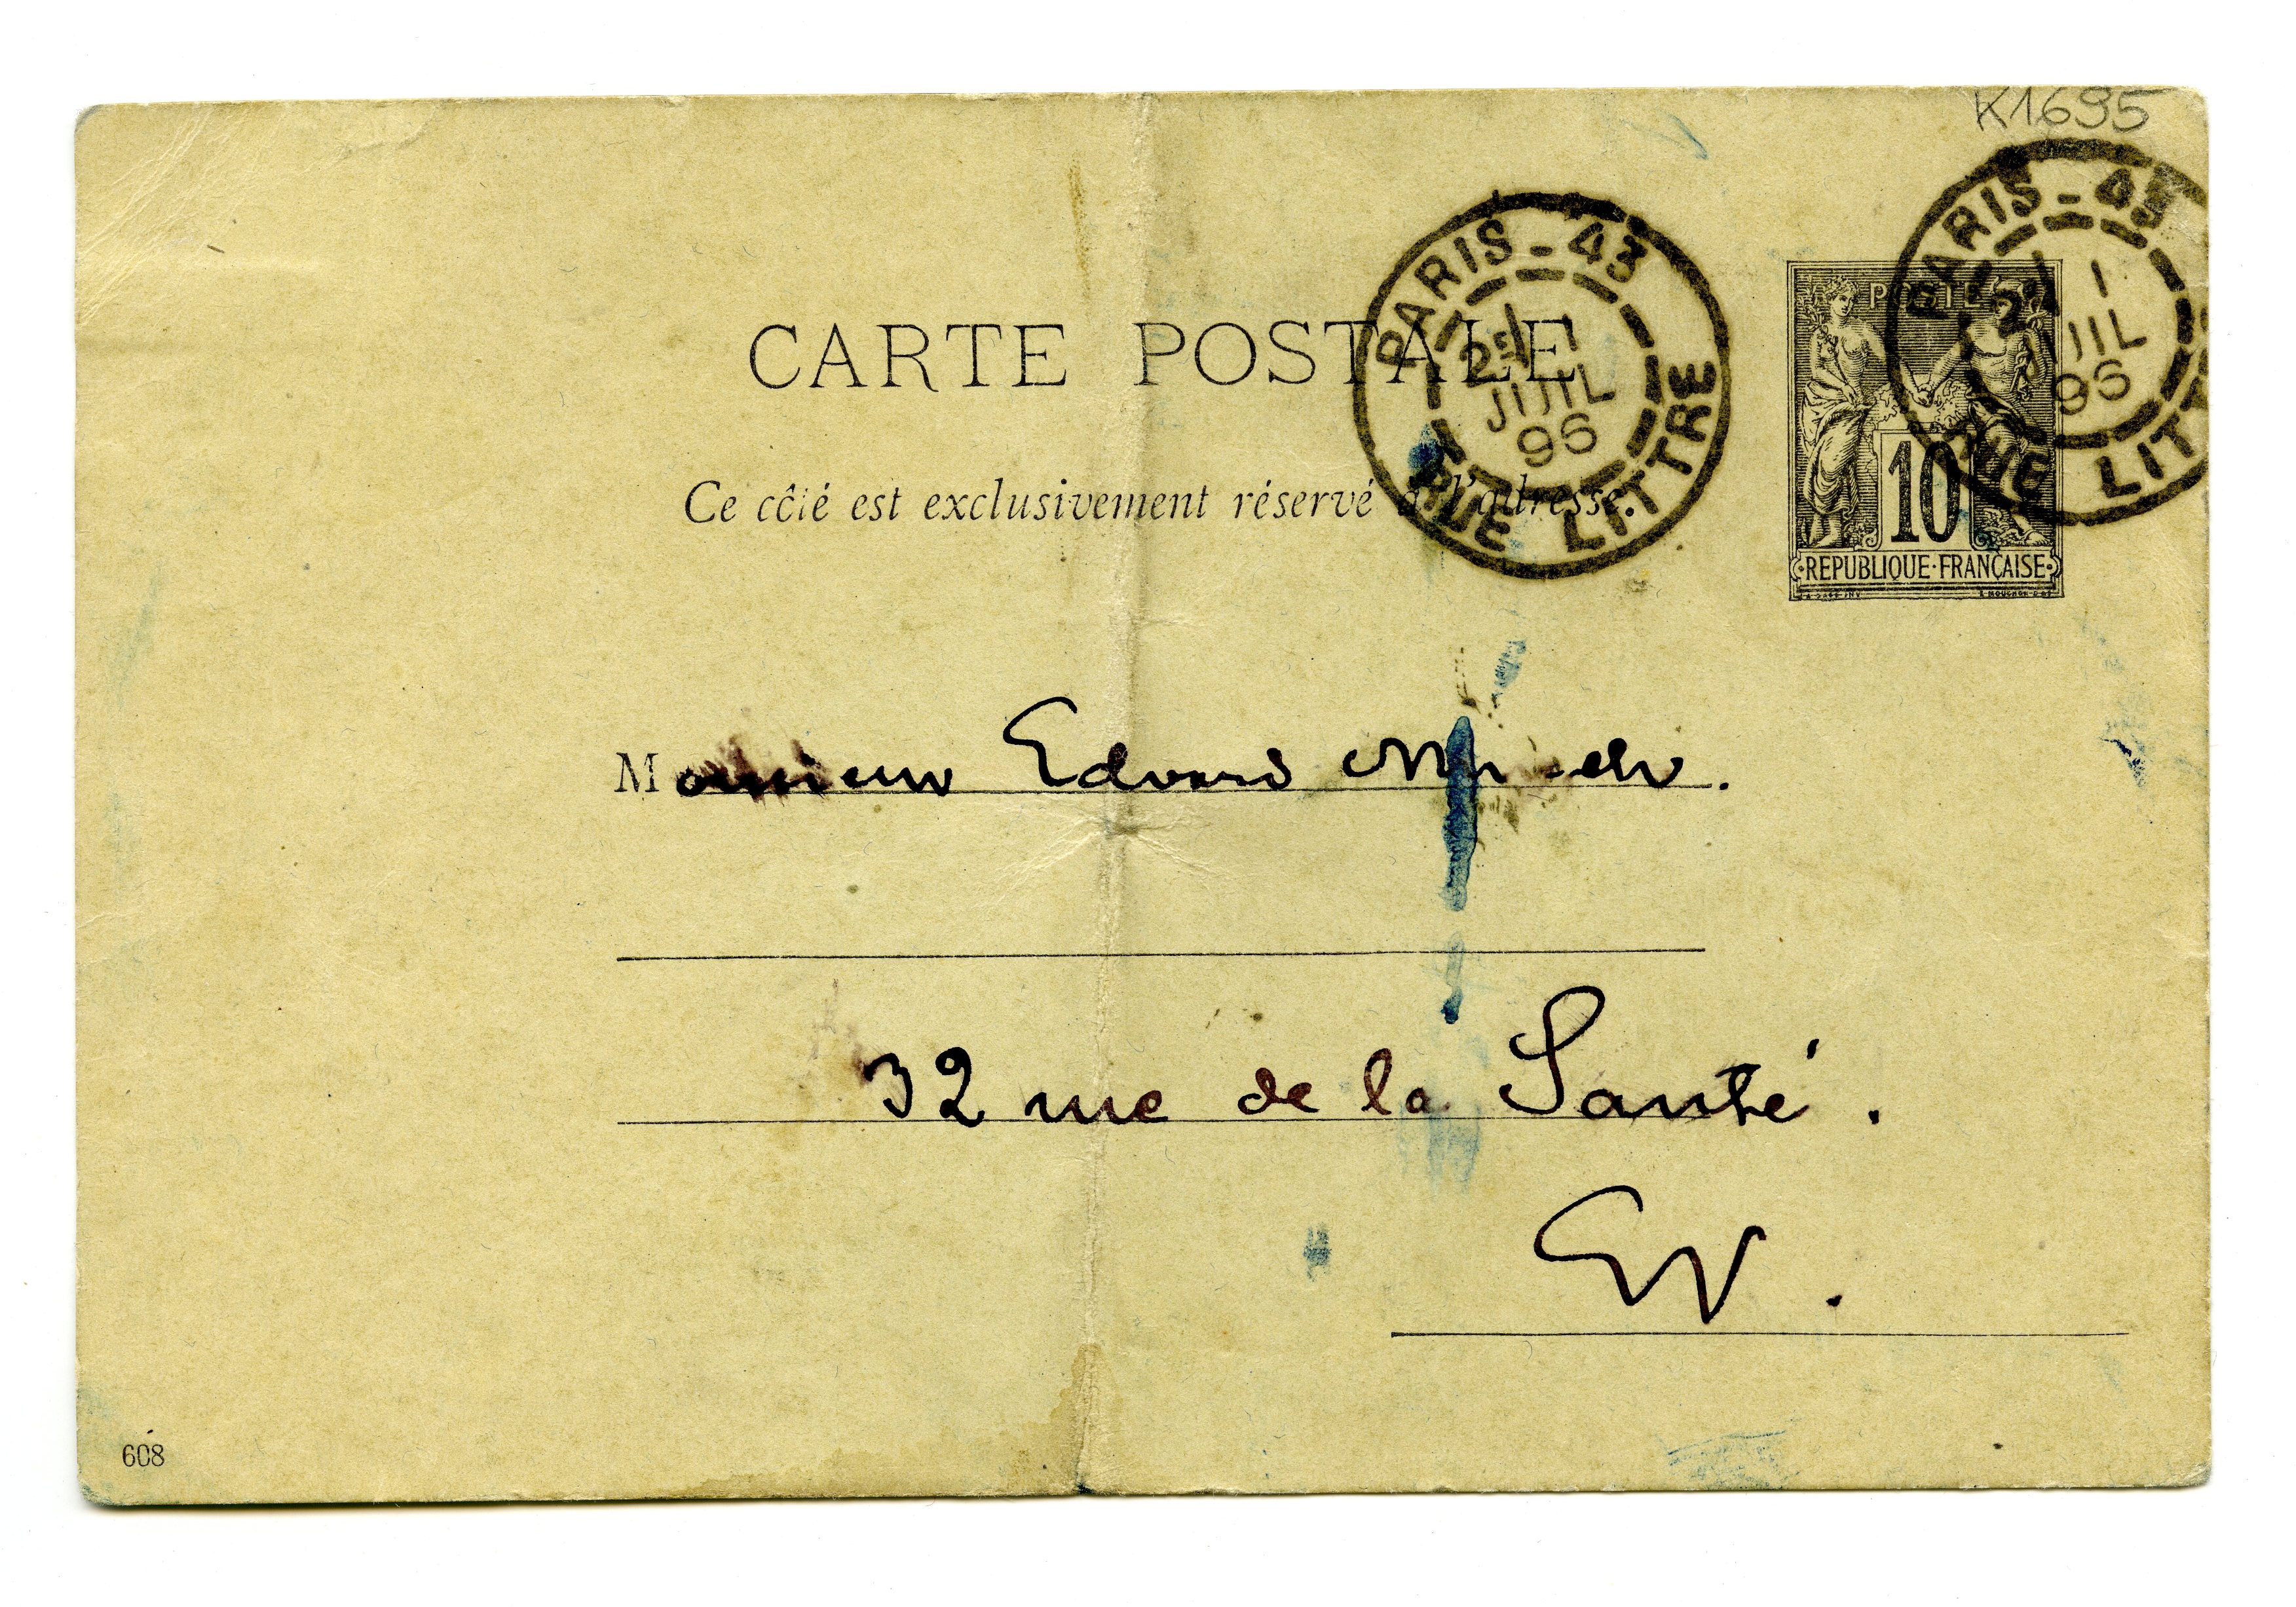 K1695
CARTE POSTALE
Ce côté est exclusivement réservé à l'adresse.
PARIS - 43
1
JUIL
96
RUE LITTRE
PARIS - 43
1
JUIL
96
RUE LITT
POSTE
10
REPUBLIQUE FRANÇAISE
Monsieur Edvard
32 rue de la Santé.
EV.
608